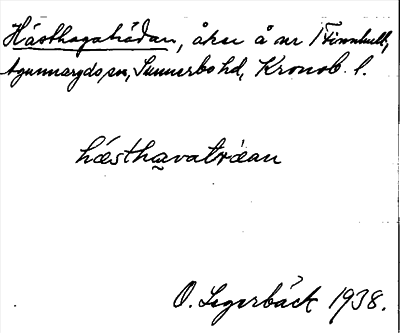 Hästhagaträdan, åker å nr 1 Finnhult,
Agunnaryds sn, Sunnerbo hd, Kronob. l.
hæsthavatræan
O. Lagerbäck 1938.